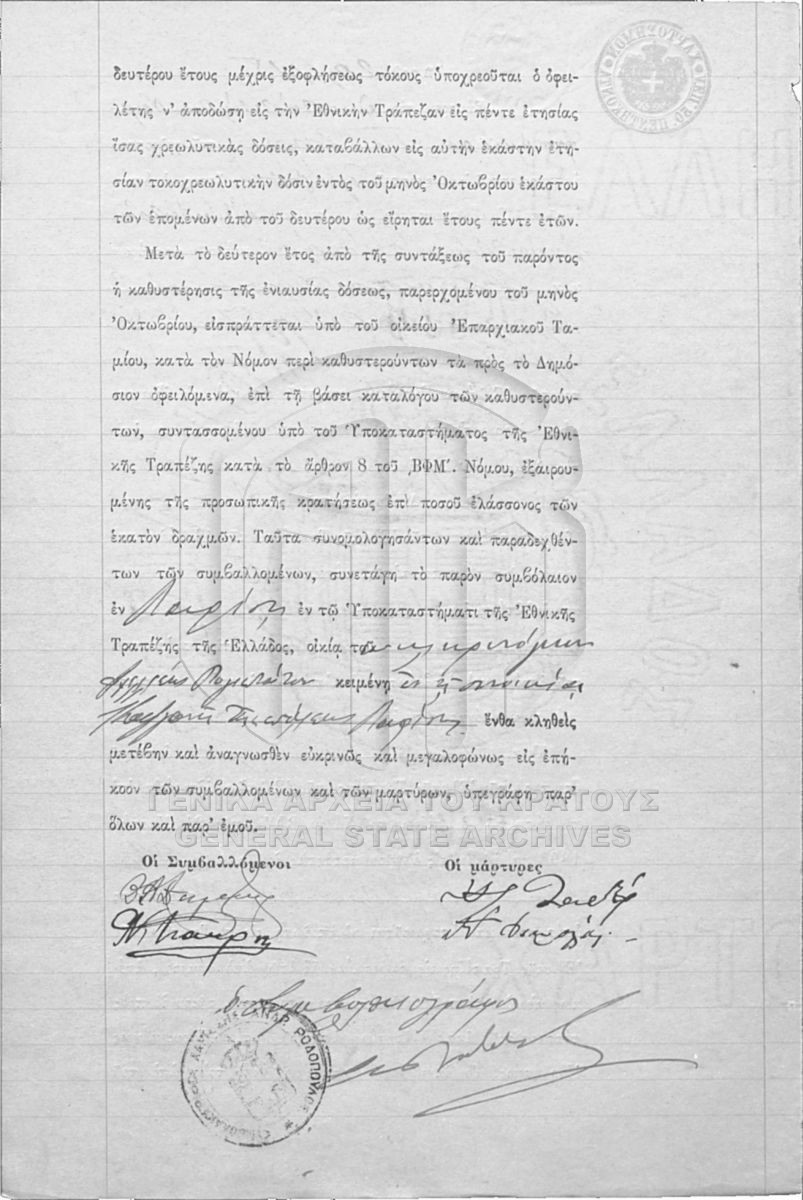 δευτέρου ἔτους μέχρις ἐξοφλήσεως τόκους ὑποχρεοῦται ὁ ὀφει-
λέτης ν' ἀποδώσῃ εἰς τὴν Ἐθνικὴν Τράπεζαν εἰς πέντε ἐτησίας
ἴσας χρεωλυτικὰς δόσεις, καταβάλλων εἰς αὐτὴν ἑκάστην ἐτη-
σίαν τοκοχρεωλυτικὴν δόσιν ἐντὸς τοῦ μηνὸς Ὀκτωβρίου ἑκάστου
τῶν ἑπομένων ἀπὸ τοῦ δευτέρου ὡς εἴρηται ἔτους πέντε ἐτῶν.
Μετὰ τὸ δεύτερον ἔτος ἀπὸ τῆς συντάξεως τοῦ παρόντος
ἡ καθυστέρησις τῆς ἐνιαυσίας δόσεως, παρερχομένου τοῦ μηνὸς
Ὀκτωβρίου, εἰσπράττεται ὑπὸ τοῦ οἰκείου Ἐπαρχιακοῦ Τα-
μίου, κατὰ τὸν Νόμον περὶ καθυστερούντων τὰ πρὸς τὸ Δημό-
σιον ὀφειλόμενα, ἐπὶ τῇ βάσει καταλόγου τῶν καθυστερούν-
των, συντασσομένου ὑπὸ τοῦ Ὑποκαταστήματος τῆς Ἐθνι-
κῆς Τραπέζης κατὰ τὸ ἄρθρον 8 τοῦ ͵ΒΦΜ΄. Νόμου, ἐξαιρου-
μένης τῆς προσωπικῆς κρατήσεως ἐπὶ ποσοῦ ἐλάσσονος τῶν
ἑκατὸν δραχμῶν. Ταῦτα συνομολογησάντων καὶ παραδεχθέν-
των τῶν συμβαλλομένων, συνετάγη τὸ παρὸν συμβόλαιον
ἐν Λαρίσῃ ἐν τῷ Ὑποκαταστήματι τῆς Ἐθνικῆς
Τραπέζης τῆς Ἑλλάδος, οἰκίᾳ τῶν κληρονόμων
κειμένῃ ἐν τῇ συνοικίᾳ
τῆς πόλεως Λαρίσης ἔνθα κληθεὶς
μετέβην καὶ ἀναγνωσθὲν εὐκρινῶς καὶ μεγαλοφώνως εἰς ἐπή-
κοον τῶν συμβαλλομένων καὶ τῶν μαρτύρων, ὑπεγράφη παρ'
ὅλων καὶ παρ' ἐμοῦ.
ΓΕΝΙΚΑ ΑΡΧΕΙΑ ΤΟΥ ΚΡΑΤΟΥΣ
GENERAL STATE ARCHIVES
Οἱ Συμβαλλόμενοι Οἱ μάρτυρες
ὁ Συμβολαιογράφος
ΡΟΔΟΠΟΥΛΟΣ